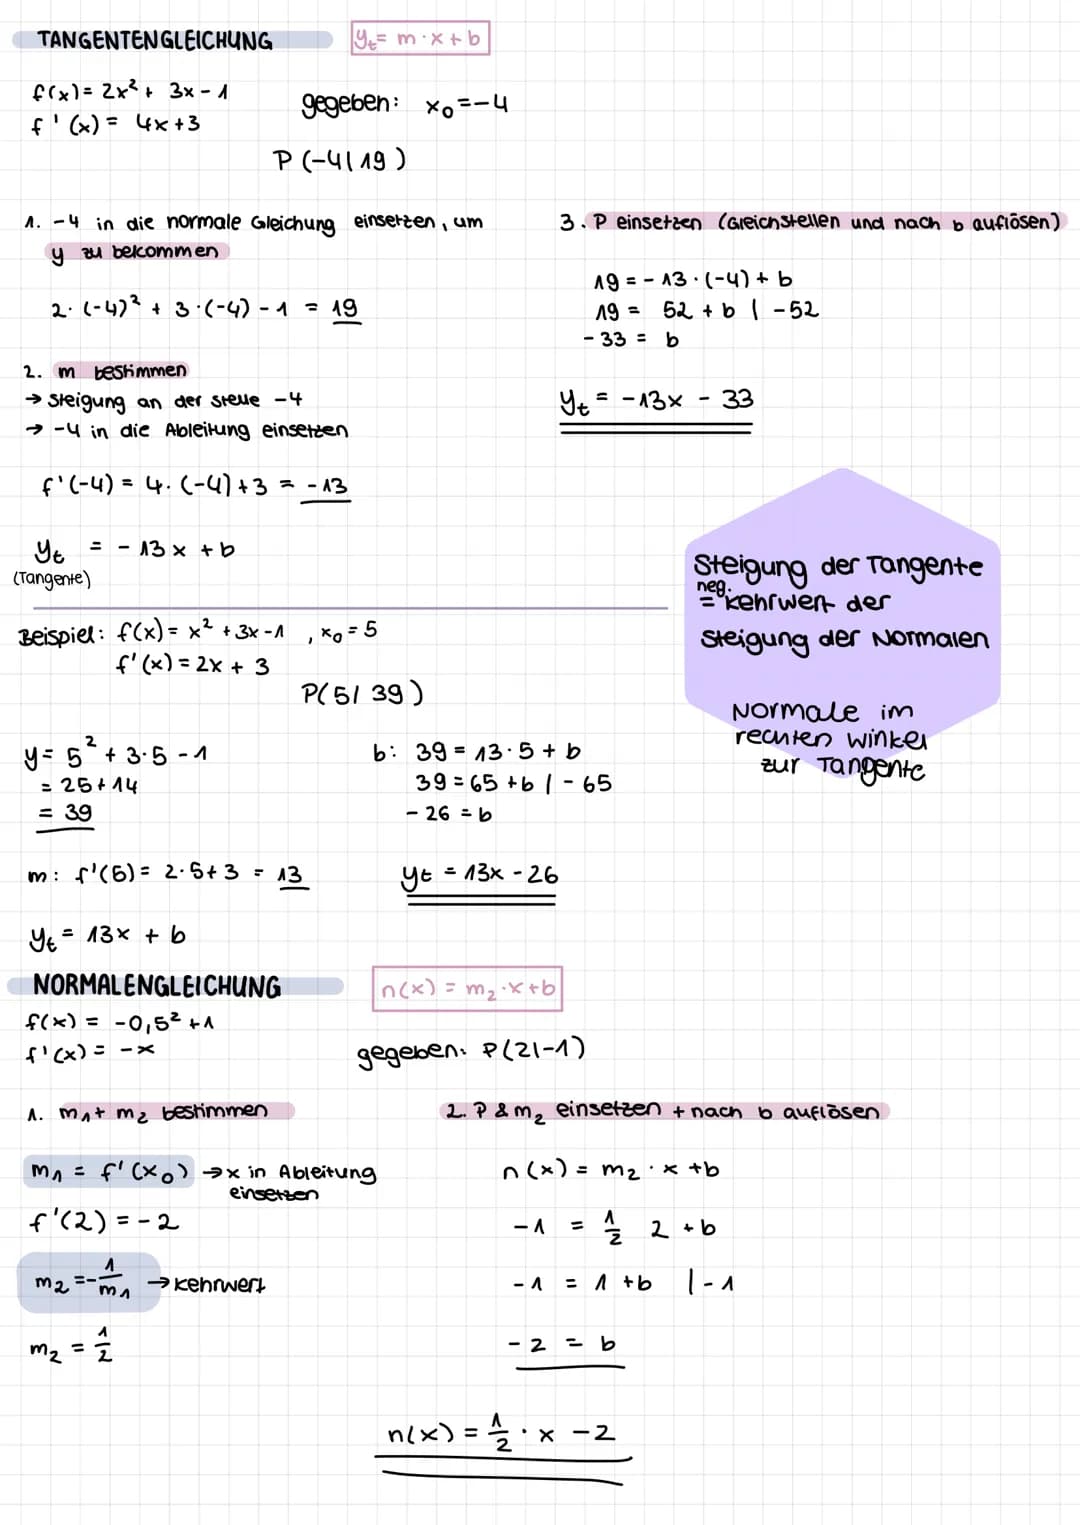 TANGENTENGLEICHUNG
yₜ = m · x + b
f(x) = 2x² + 3x - 1
f'(x) = 4x + 3
gegeben: x₀ = -4
P (-4 | 19)
1. -4 in die normale Gleichung einsetzen, um
y zu bekommen
2 · (-4)² + 3 · (-4) - 1 = 19
2. m bestimmen
→ Steigung an der Stelle -4
→ -4 in die Ableitung einsetzen
f'(-4) = 4 · (-4) + 3 = -13
yₜ = - 13 x + b
(Tangente)
3. P einsetzen (Gleichstellen und nach b auflösen)
19 = - 13 · (-4) + b
19 = 52 + b | -52
- 33 = b
yₜ = -13x - 33
Steigung der Tangente
neg.
= kehrwert der
Steigung der Normalen
Normale im
rechten winkel
zur Tangente
Beispiel: f(x) = x² + 3x - 1 , x₀ = 5
f'(x) = 2x + 3
P(5 | 39)
y = 5² + 3 · 5 - 1
= 25 + 14
= 39
m: f'(5) = 2 · 5 + 3 = 13
yₜ = 13x + b
b: 39 = 13 · 5 + b
39 = 65 + b | - 65
- 26 = b
yₜ = 13x - 26
NORMALENGLEICHUNG
n(x) = m₂ · x + b
f(x) = -0,5² + 1
f'(x) = -x
gegeben: P(2 | -1)
1. m₁ + m₂ bestimmen
m₁ = f'(x₀) → x in Ableitung
einsetzen
f'(2) = - 2
m₂ = - 1/m₁ → kehrwert
m₂ = 1/2
2. P & m₂ einsetzen + nach b auflösen
n(x) = m₂ · x + b
-1 = 1/2 2 + b
-1 = 1 + b | - 1
- 2 = b
n(x) = 1/2 · x - 2